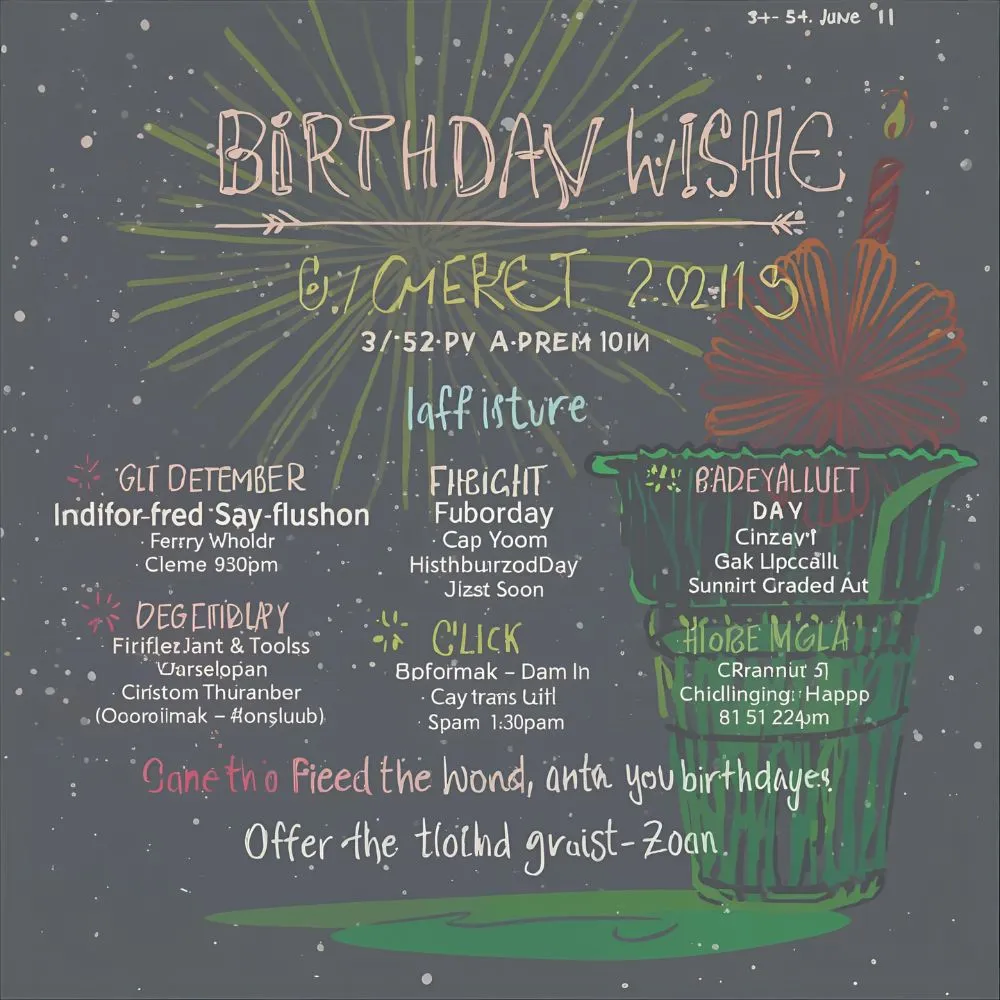 3+- 5+. JUNE '11
BIRTHDAY WISHE
G./CMERET 2.0211S
3/-52-PV A-PREM 10IN
laff isture
GLT DETEMBER
Indifor-fred Say-flushon
· Ferrry Wholdr
· Cleme 930pm
FHBIGHT
Fuborday
· Cap Yoom
HisthburzodDay
Jizst Soon
BADEYALLUET
DAY
Cinzav't
Gak Lipccalll
Sunnirt Graded Aut
DEGETIDLAPY
FiriflezJant & Toolss
Varselopan
Ciristom Thuranber
(Oooroiimak – #onşluub)
CLICK
Bpformak – Dam In
· Cay trans Litl
· Spam 1:30pam
HOBE MGLA
CRrannut 5)
Chidlinging: Happp
81 51 224pm
Sane th o Fieed the hond, anta you birthdayes.
Offer the tlolhd gruist-Zoan.